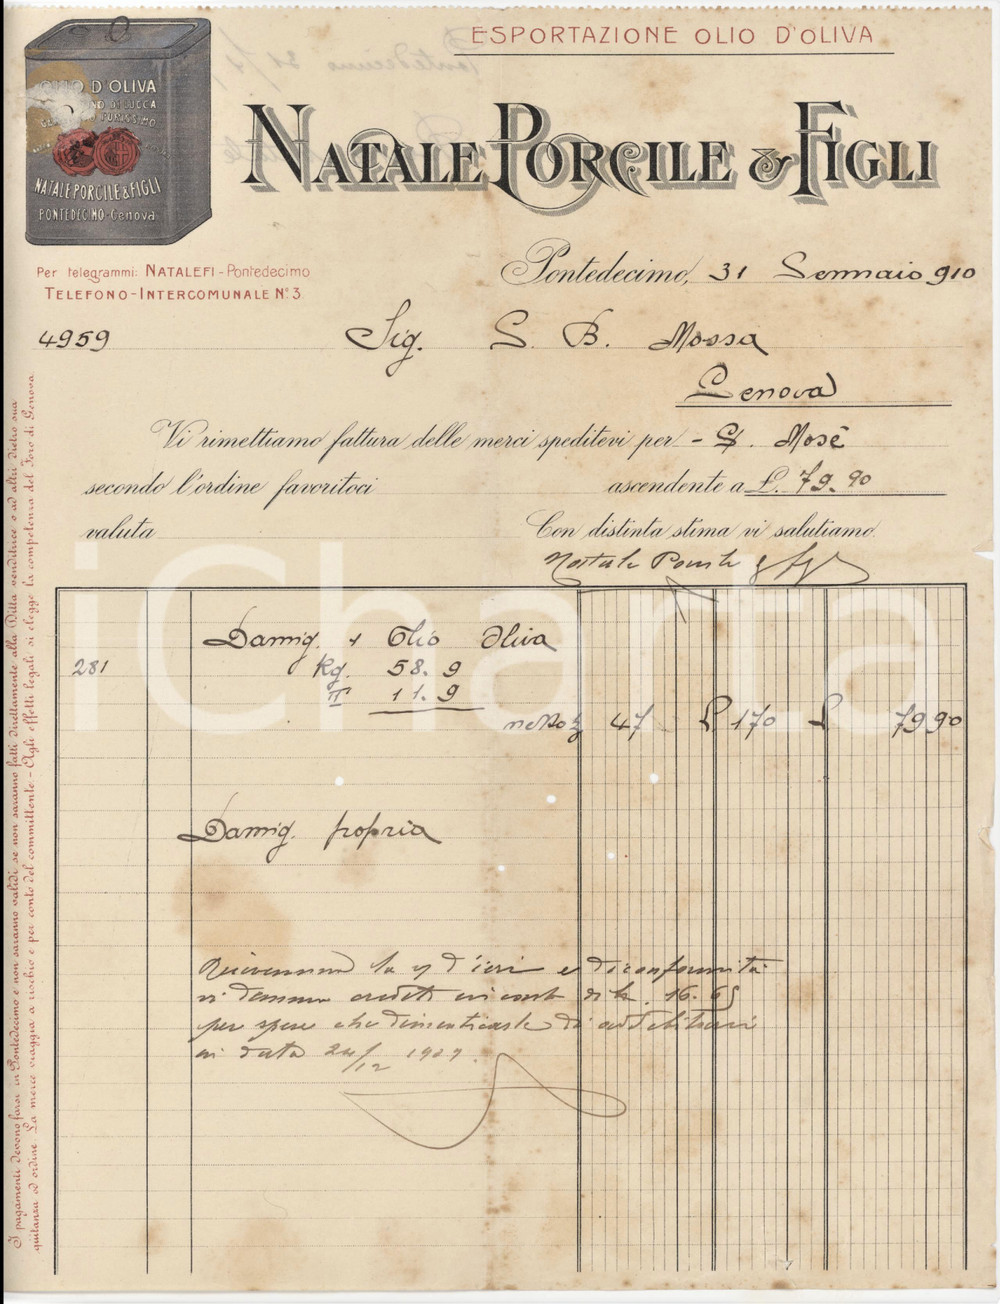 ESPORTAZIONE OLIO D'OLIVA
OLIO D'OLIVA
DI LUCCA
PURISSIMO
NATALE PORCILE & FIGLI
PONTEDECIMO-Genova
NATALE PORCILE & FIGLI
Per telegrammi: NATALEFI - Pontedecimo
TELEFONO-INTERCOMUNALE N.º 3
Pontedecimo, 31 Gennaio 910
4959
Sig. G. B. Mossa
Genova
Vi rimettiamo fattura delle merci speditevi per - G. Mosè
secondo l'ordine favoritoci ascendente a £. 79.90
valuta Con distinta stima vi salutiamo.
Natale Porcile & figli
Damig. 1 Olio Oliva
281 Kg. 58.9
T 11.9
netto K 47 £ 170 £ 79 90
Damig. propria
Riceviamo la d'ieri e di conformità
vi diamo credito in conto di £. 16.65
per spese che dimenticaste di addebitarvi
in data 24/12 1909.
I pagamenti devono farsi in Pontedecimo e non saranno validi se non saranno fatti direttamente alla Ditta venditrice o ad altri dietro sua
quitanza od ordine. La merce viaggia a rischio e per conto del committente. - Agli effetti legali si elegge la competenza del Foro di Genova.
iCharta